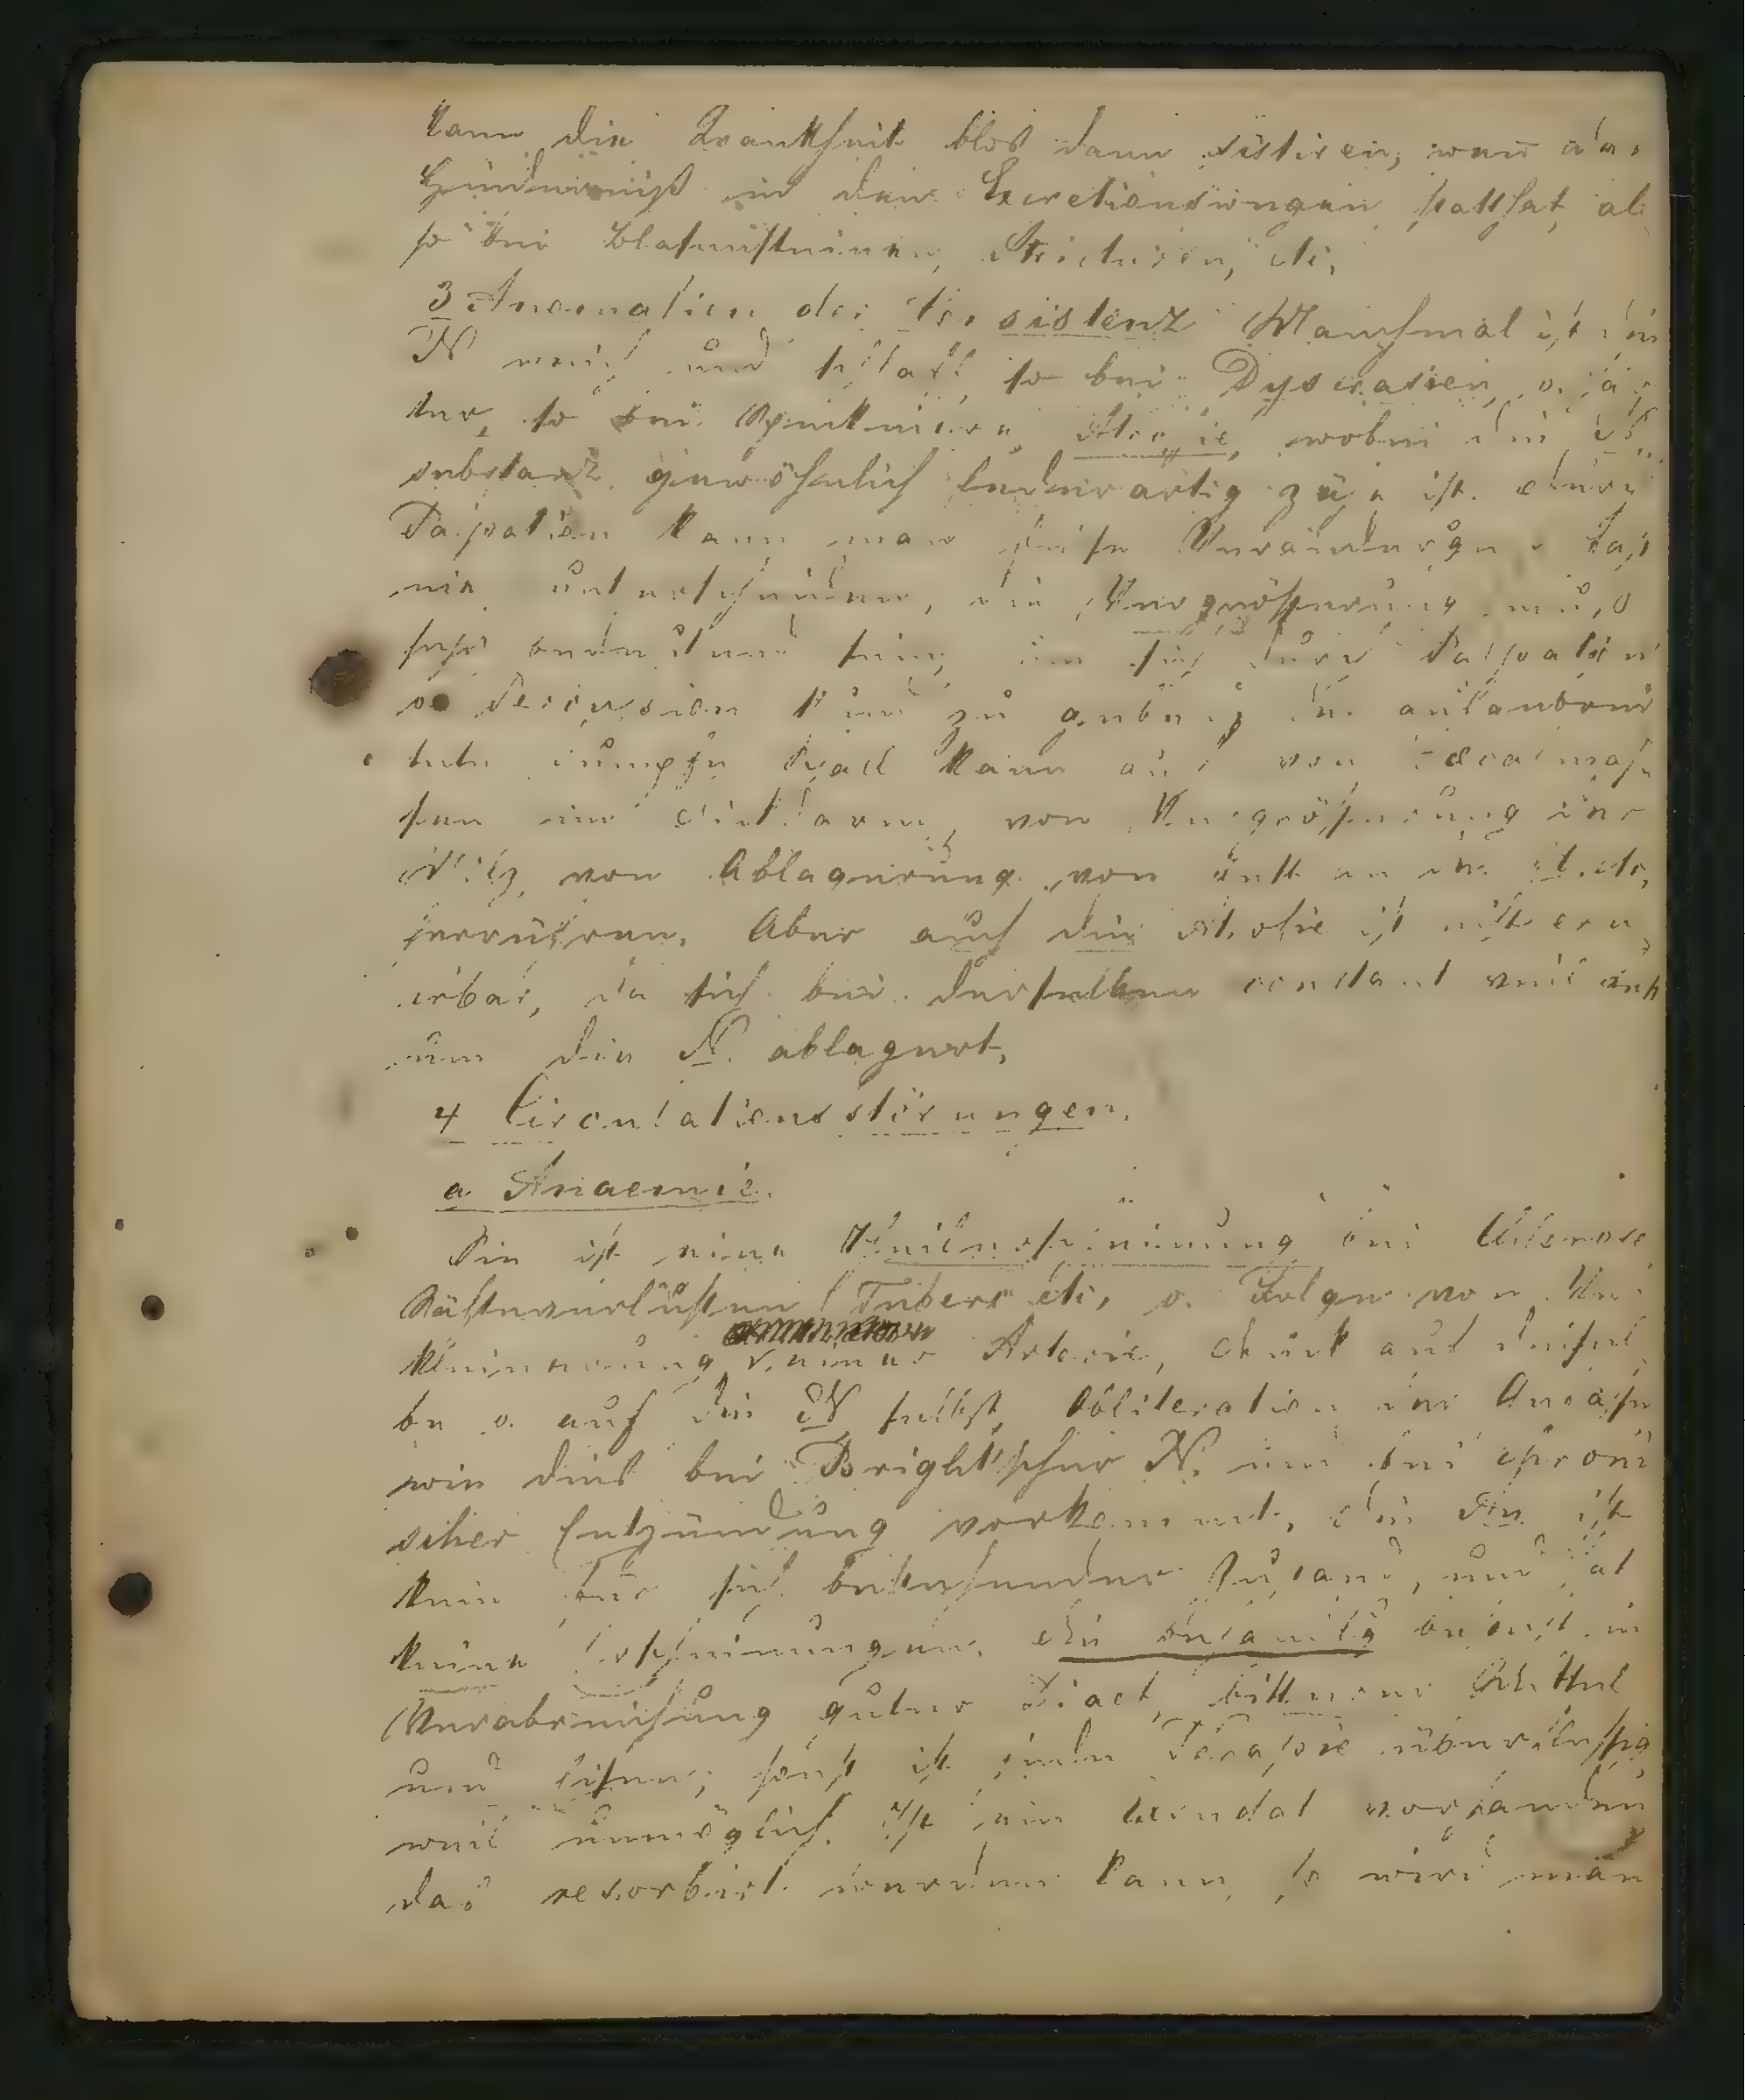 kann die Krankheit blos dann sistiren, wenn das
Hinderniß in den Excretionswegen statthat, al
so bei Blasensteinen, Stricturen, etc.
3 Anomalien der Consistenz Manchmal ist die
N weich und schlaff, so bei Dyscrasien, o. här
ter, so bei Speckniere, Atrophie, wobei die
substanz gewöhnlich lederartig zäh ist. Durch
Palpation kann man diese Veränderungen fast
nie unterscheiden, die Vergrößerung muß
sehr bedeutend sein, um sich durch Palpation
o Percussion kund zu geben; der
dumpfe Schall kann auch von Faecalmas
sen im Dickdarm, von Vergrößerung der
Milz, von Ablagerung von Fett um die N. etc.
herrühren. Aber auch die Atrophie ist nicht
irbar, da sich bei derselben constant viel Fett
um die N. ablagert.
4 Circulationsstörungen.
a Anaemie.
Sie ist eine Theilerscheinung bei Chlorose
Säfteverlusten, Tubers etc, o. Folge von Ver
kleinerung einer Arterie, Druck auf diesel
be o. auf die N selbst, Obliteration der Gefäße
wie dies bei Bright'scher N. und bei chroni
scher Entzündung vorkommt. Die An. ist
kein für sich bestehender Zustand, und hat
keine Erscheinungen. Die Behandlg besteht in
Verabreichung guter Diaet, bitterer Mittel
und Eisen; sonst ist jede Therapie überflüssig,
weil unmöglich. Ist ein Exsudat vorhanden
das resorbirt werden kann, so wird man